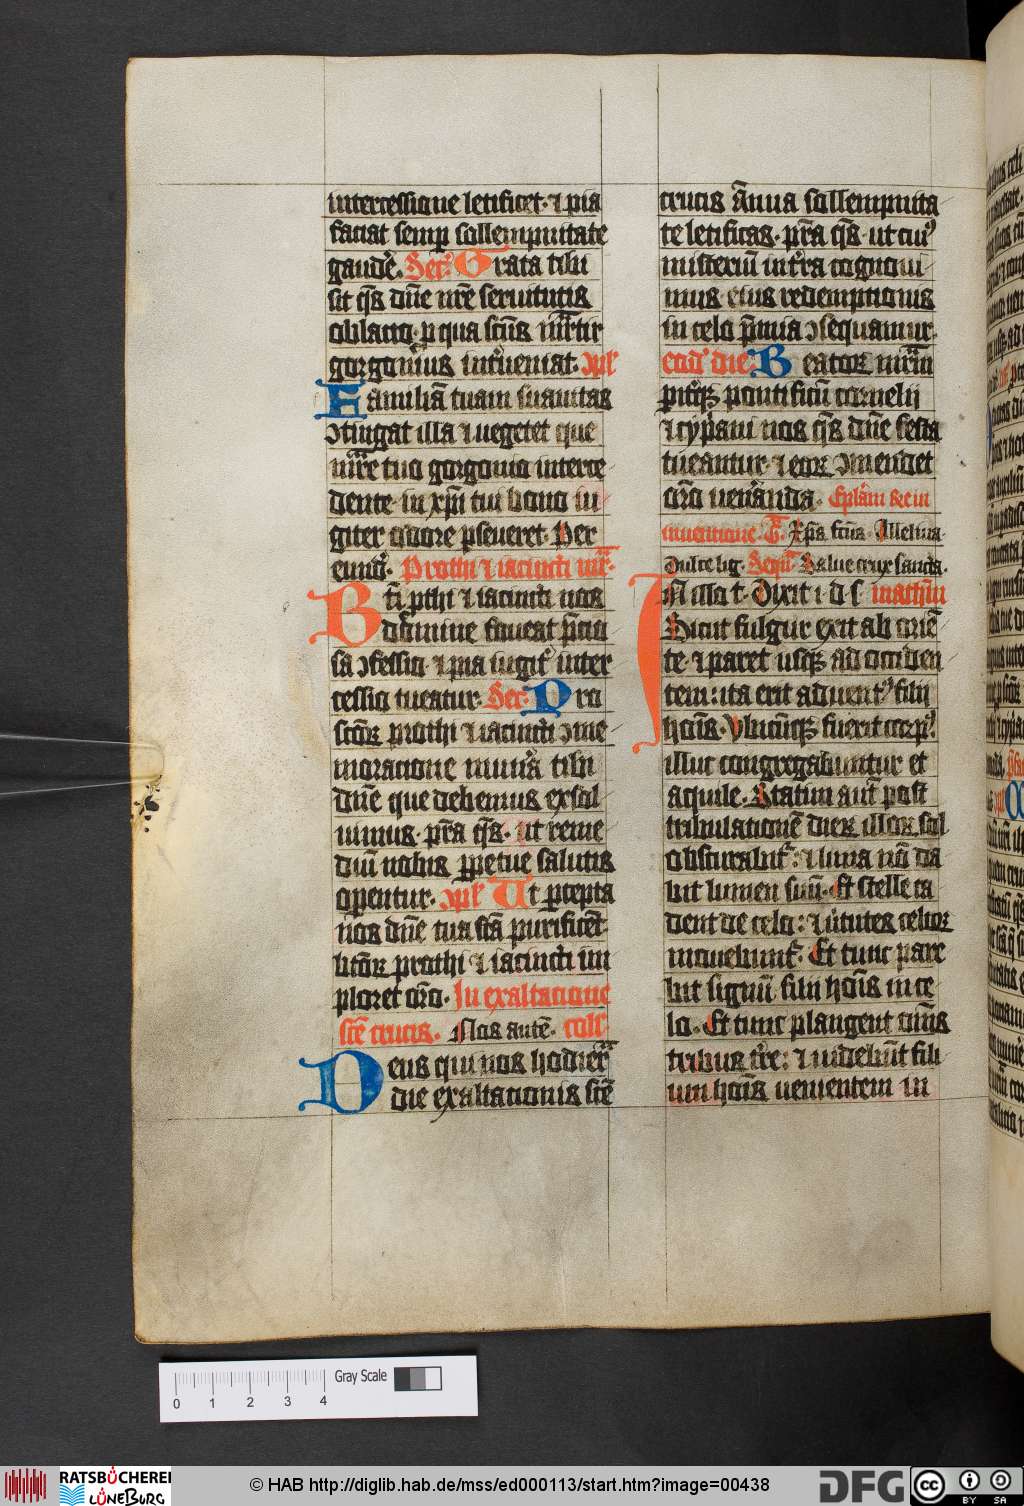 intercessione letificet · ⁊ pia
faciat semp sollempnitate
gaudē. Secͬ. Grata tibi
sit q̄s dn̄e nr̄e seruitutis
oblacio · p qua sc̄us mr̄tir
gorgonius int̄ueniat. ꝯpl̄
Familiā tuam suauitas
ꝯtingat illa ⁊ uegetet que
mr̄re tuo gorgonio interce
dente · in xp̄i tui bono iu
giter odore pseueret. Per
eund̄. Prothi ⁊ iacincti mr̄.
Bt̄i p̄thi ⁊ iacincti nos
dn̄e foueat p̄cio
sa ꝯfessio · ⁊ pia iugit̄ inter
cessio tueatur. Secͬ. Pro
sc̄oꝝ prothi ⁊ iacincti ꝯme
moracione mun̄a tibi
dn̄e que debemus exsol
uimus · p̄ra q̄s · ut reme
diū nobis ppetue salutis
operentur. ꝯpl̄ Ut pcepta
nos dn̄e tua sc̄a purificet
bt̄oꝝ prothi ⁊ iacincti im
ploret or̄o. In exaltacione
sc̄e crucis. Nos autē. coll̄
Deus qui nos hodier̄
die exaltacionis sc̄e
crucis ān̄ua sollempnita
te letificas · p̄ra q̄s · ut cui᷒
misteriū int̄ra cognoui
mus · eius redempcionis
in celo p̄mia ꝯsequamur.
eod̄ die. Beatoꝝ mr̄m
pit̄qꝫ pontificū cornelii
⁊ cypani nos q̄s dn̄e festa
tueantur · ⁊ eoꝝ ꝯmendet
or̄o uen̄anda. Epl̄am & ew̄
inuencione. Gͬ. Xp̄s fc̄us. Alleluia.
Dulce liḡ. Seqū. Salue crux sancta.
In illo t. Dixit i. d. s. matheū
Sicut fulgur exit ab oriē
te · ⁊ paret usqꝫ ad occiden
tem: ita erit aduent᷒ filii
hoīs. Vbicūqꝫ fuerit corp᷒:
illuc congregabuntur et
aquile. Statim aut̄ post
tribulationē dieꝝ illoꝝ sol
obscurabit̄: ⁊ luna nō da
bit lumen suū. Et stelle ca
dent de celo: ⁊ ūtutes celioꝝ
mouebunt̄. Et tunc pare
bit signū filii hoīs in ce
lo. Et tunc plangent oms̄
tribus tr̄e: ⁊ uidebūt fili
um hoīs uenientem in
0 1 2 3 4 Gray Scale
RATSBÜCHEREI LÜNEBURG
© HAB http://diglib.hab.de/mss/ed000113/start.htm?image=00438
DFG
cc BY SA